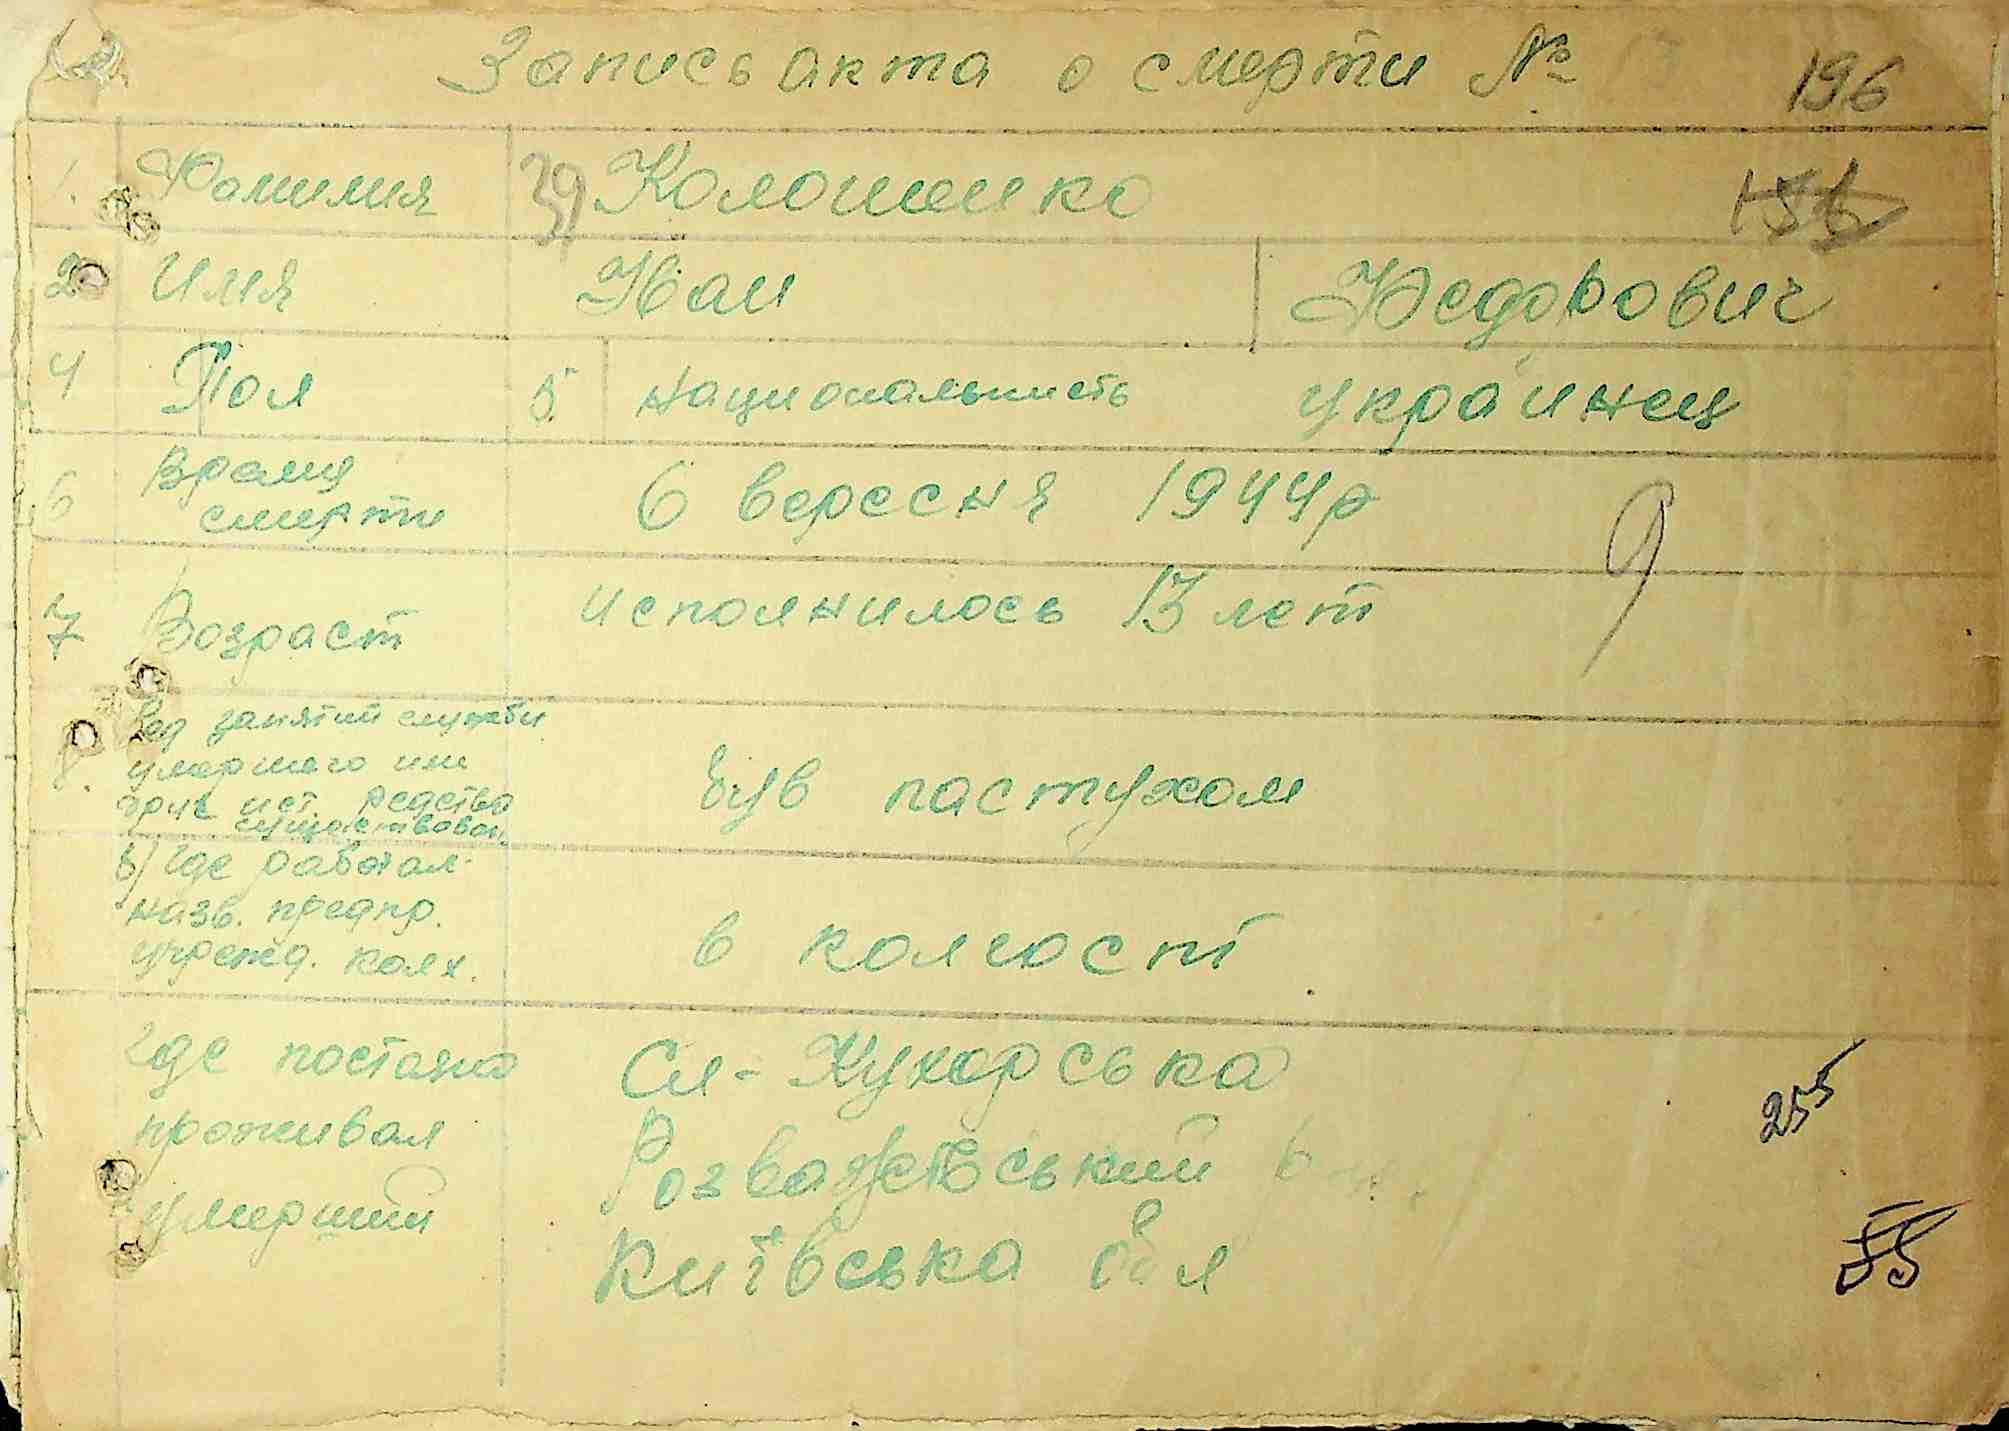 Запись акта о смерти № 196
1. Фамилия 39 Коломенко 156
2 Имя Иван Федорович
4 Пол 5 национальность украинец
6 Время
смерти 6 вересня 1944р
7 Возраст исполнилось 13 лет
8. Вид занятий службы
умершего или
ист. редства
существован.
був пастухом
в) где работал
назв. предпр.
учрежд. колх.
в колгоспі
где постояно
проживал
умерший
Сл-Кухарська 255
Розважевський
Київська обл 55